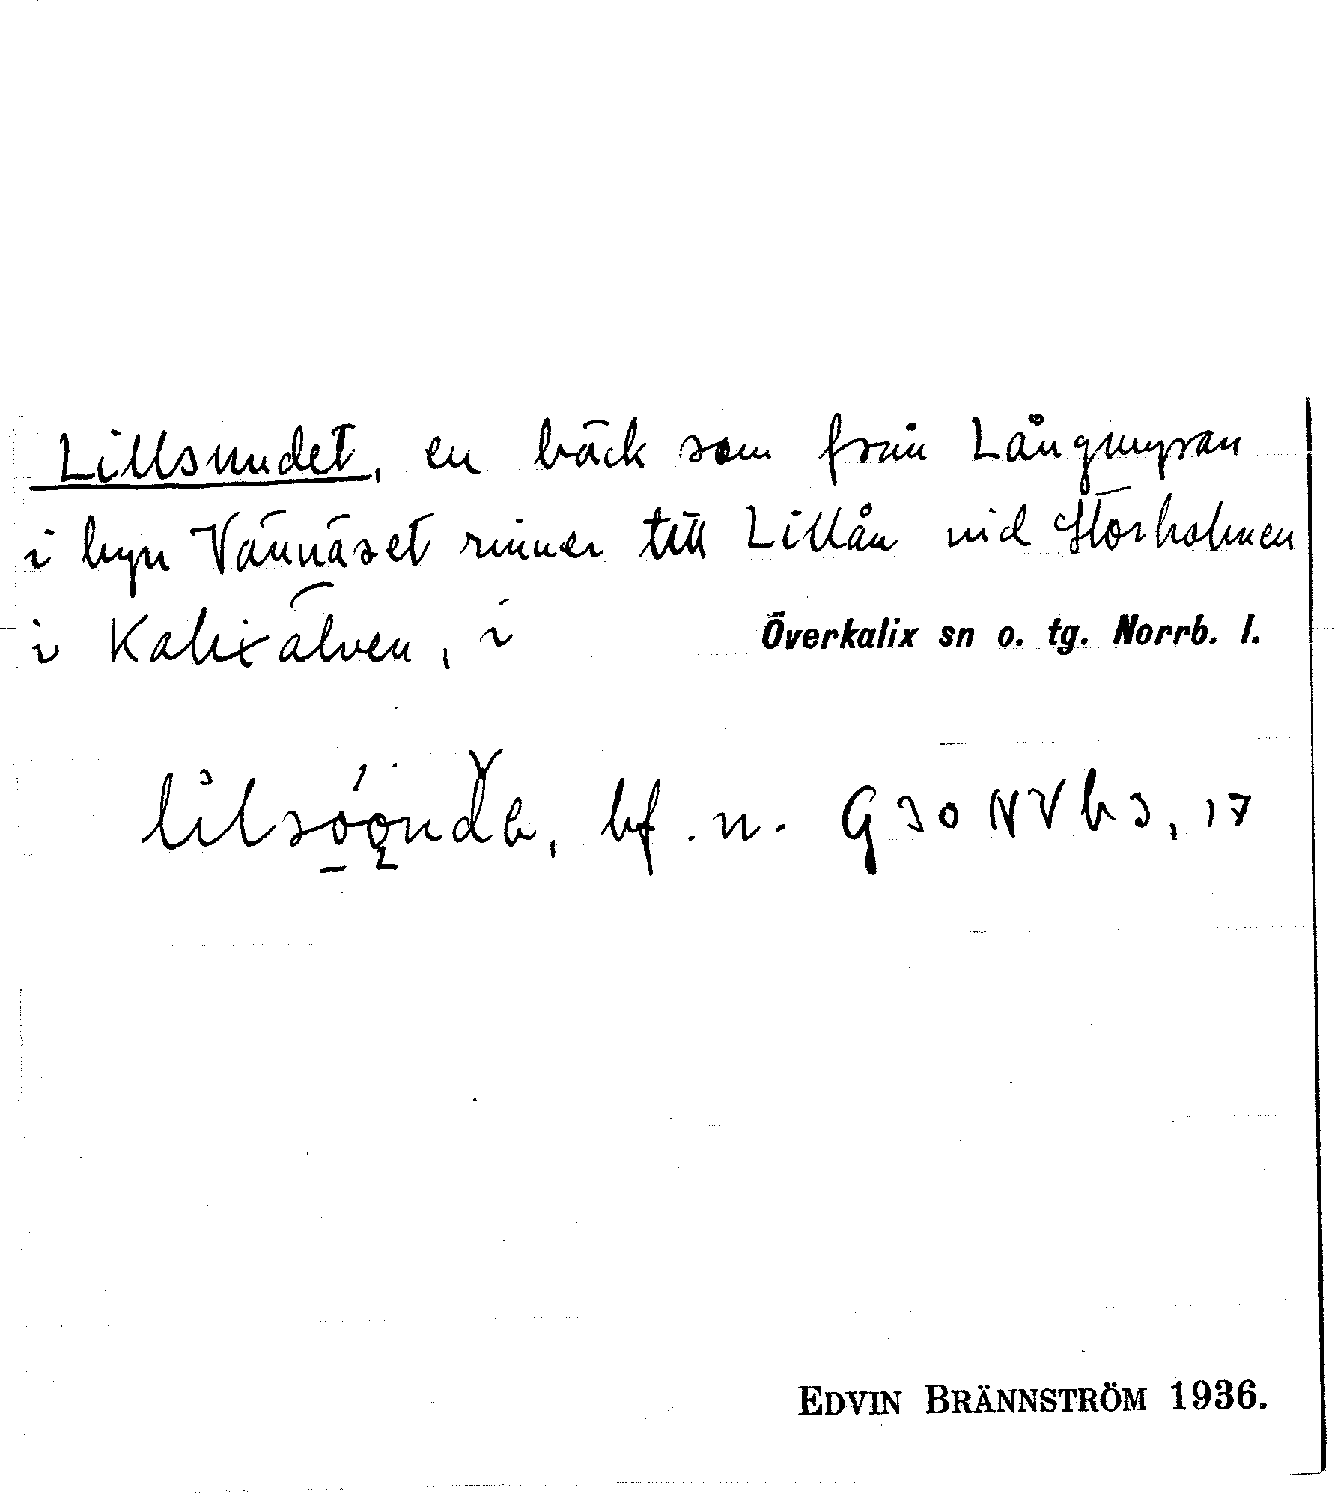 Lillsundet, en bäck som från Långmyran
i byn Vännäset rinner till Lillån vid Storholmen
i Kalixälven, i Överkalix sn o. tg. Norrb. l.
bf. n. G 30 NV b 3, 17
EDVIN BRÄNNSTRÖM 1936.